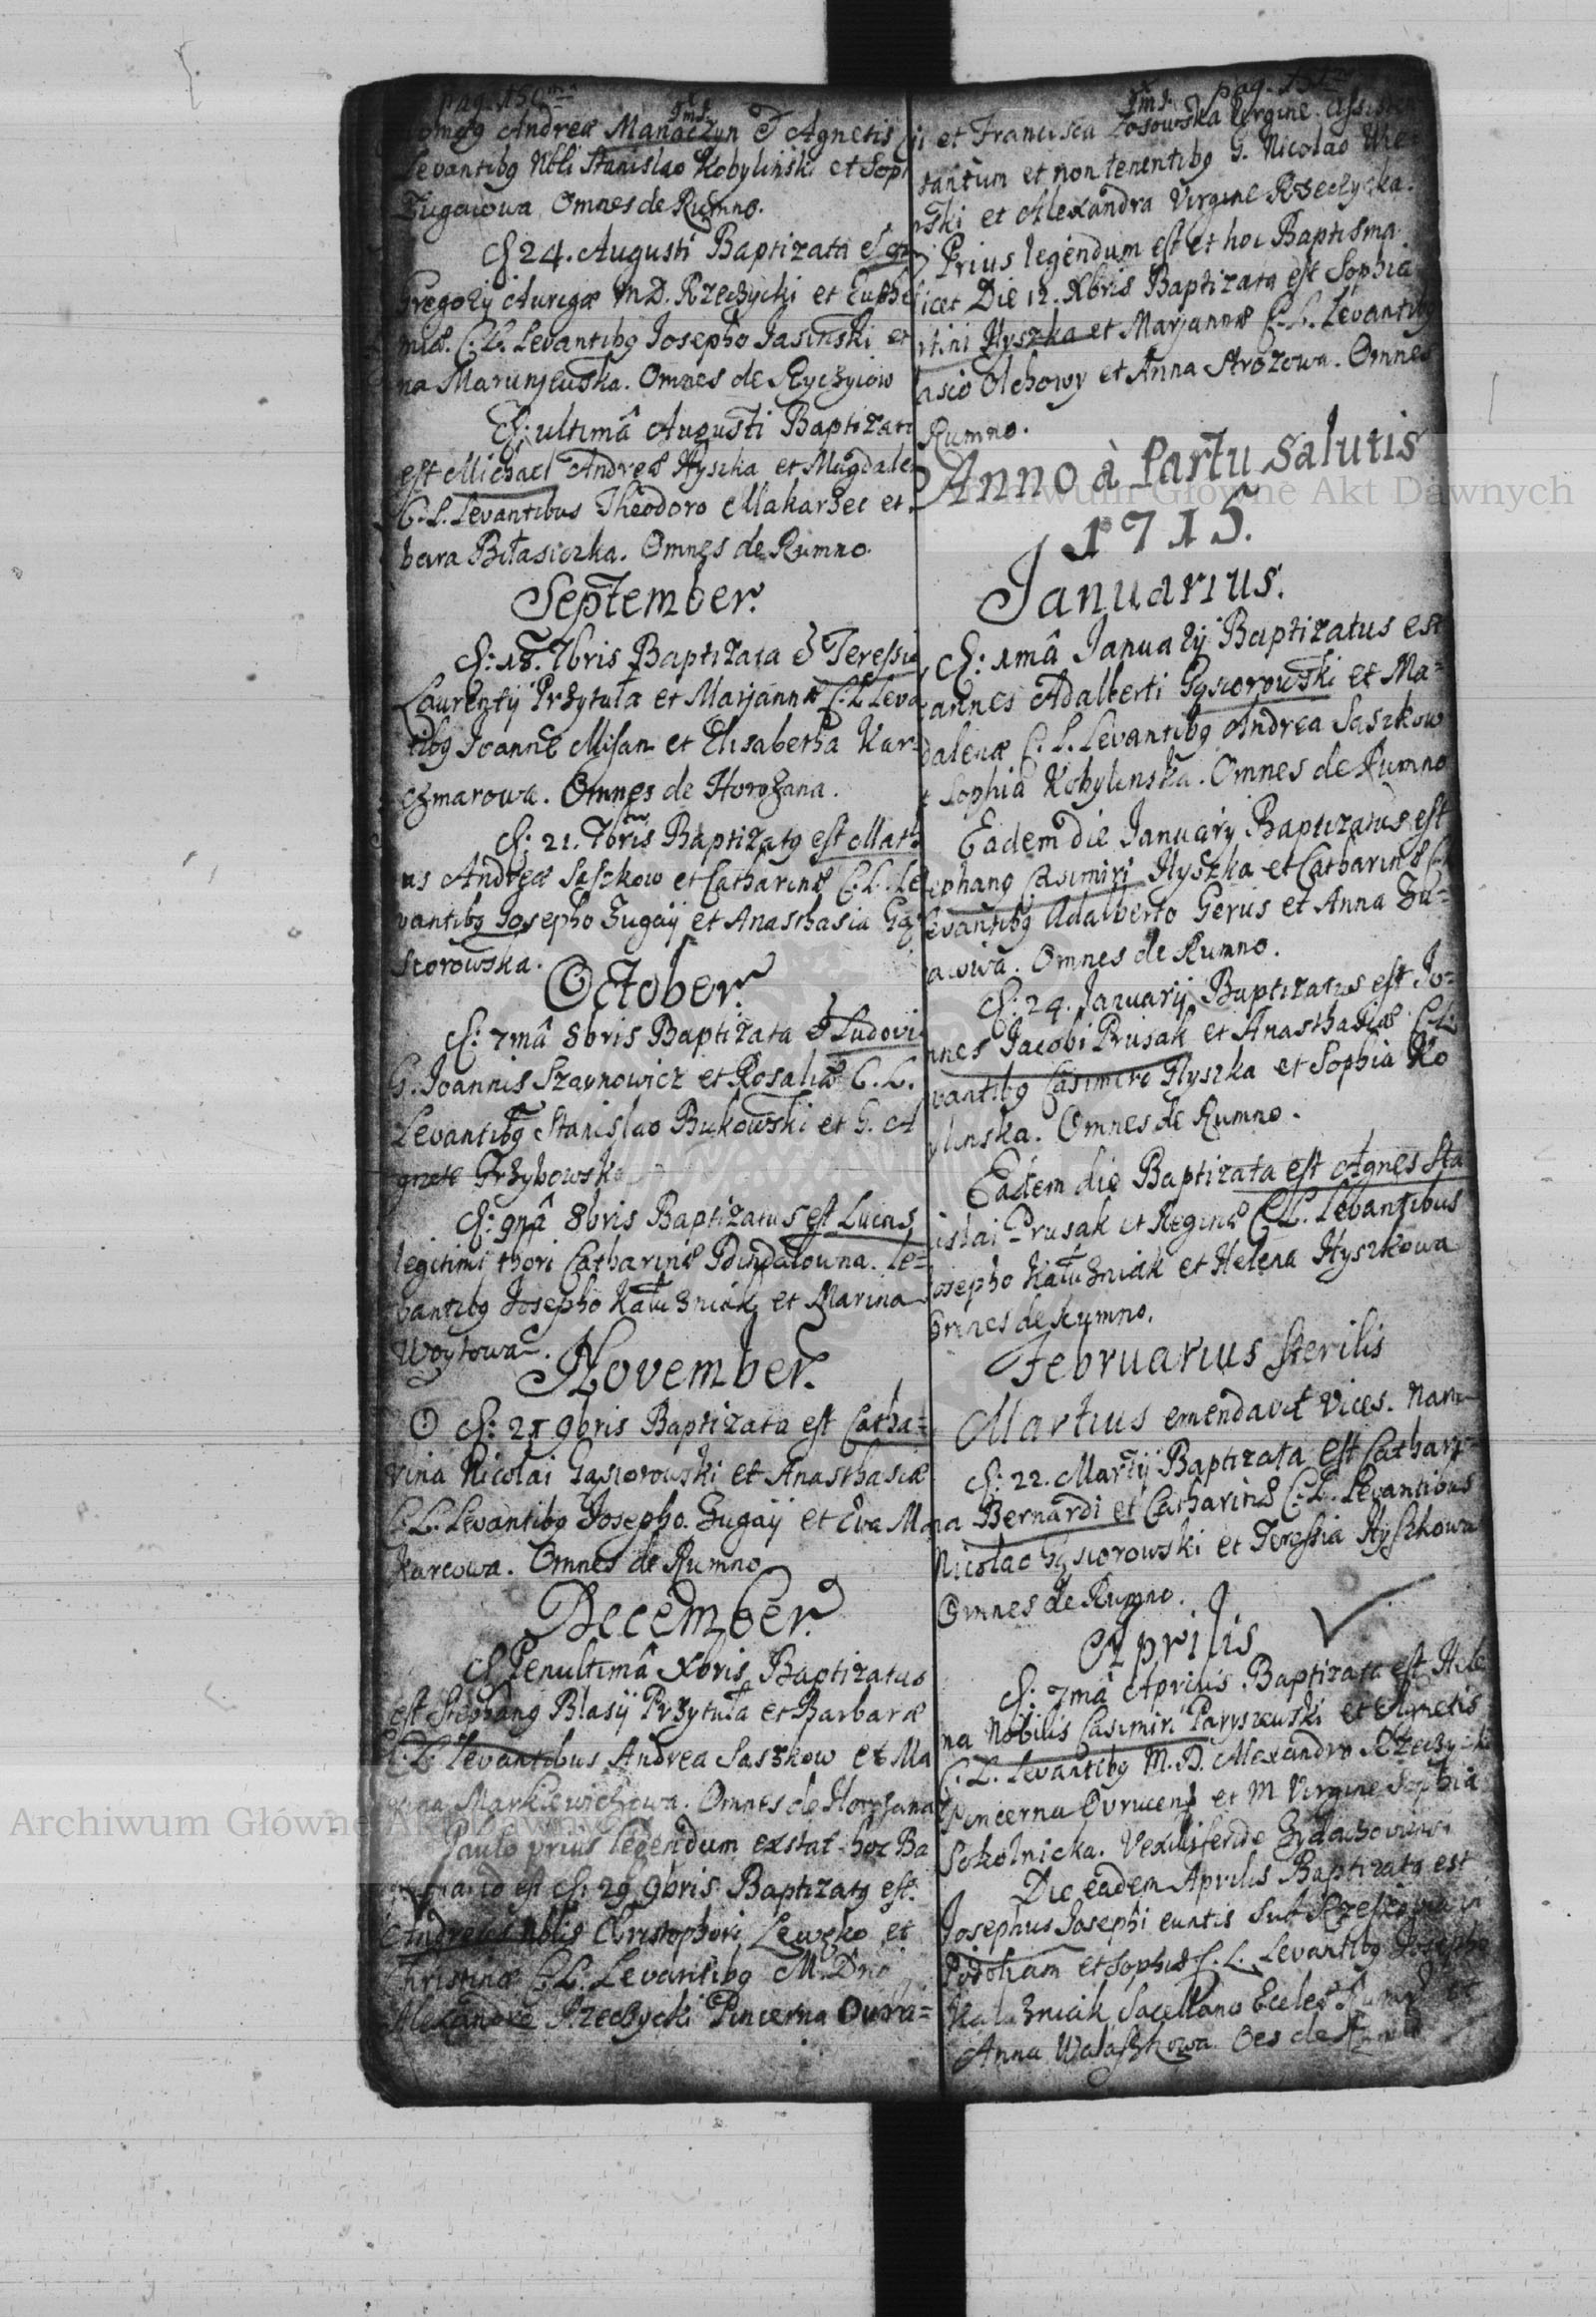 pag. 150
Andreæ Manaczyn ē Agnetis
Levantibq Nbli Stanislao Kobylinski et Soph
Zugaiowa Omnes de Rumno.
D: 24. Augusti Baptizata ē
Gregorij Aurigæ M.D. Rzeczycki et Euphe
miæ. C.L. Levantibq Josepho Jasinski et
na Marunjewska. Omnes de Ryczyciow
D: ultimâ Augusti Baptizatq
est Michael Andreæ Hyszka et Magdale
C.L. Levantibus Theodoro Makarzec et
bara Bitasiczka. Omnes de Rumno.
September.
D: 18. 7bris Baptizata ē Teressia
Laurentij Przytuła et Mariannæ C.L. Leva
tibq Joanne Misan et Elisabetha Kar-
czmarowa. Omnes de Horozana.
D: 21. 7bris Baptizatq est Math
us Andreæ Saszkow et Catharinæ C.L. Le
vantibq Josepho Zugaij et Anasthasia Gą
siorowska.
October.
D: 7mâ 8bris Baptizata ē Ludovi
G. Joannis Szarnowicz et Rosaliæ C.L.
Levantibq Stanislao Bukowski et G. A
gnete Grzybowska
D: 9nâ 8bris Baptizatus est Lucas
legitimi thori Catharinæ Le-
vantibq Josepho Kałuzniak et Marina
Woytowa.
November.
D: 25 9bris Baptizata est Catha-
rina Nicolai Gąsiorowski et Anasthasiæ
C.L. Levantibq Josepho Zugaij et Eva Ma
karcowa. Omnes de Rumno
December.
D: Penultimâ Xbris Baptizatus
est Stephanq Blasij Przytuła et Barbaræ
C.L. Levantibus Andrea Saszkow et Ma
rina Markiewichowa. Omnes de Horozana
Paulo prius legendum exstat hoc Ba
id est D: 29 9bris Baptizatq est
Andreas Nblis Christophori Lewęko et
Christinæ C.L. Levantibq M. Dno
Alexandro Rzeczycki Pincerna Ovru-
pag. 151
et Francisca Łosowska Virgine. Assis
tantum et non tenentibq G. Nicolao
nski et Alexandra Virgine Rzeczycka.
Prius legendum est et hoc Baptisma
licet Die 12. Xbris Baptizata est Sophia
rtini Hyszka et Mariannæ C.L. Levantibq
lasio Olchowy et Anna Strozowa. Omnes
Rumno.
Anno à Partu Salutis
1715.
Januarius.
D: 1mâ Januarij Baptizatus est
annes Adalberti Gąsiorowski et Ma-
dalenæ C.L. Levantibq Andrea Saszkow
t Sophia Kobylinska. Omnes de Rumno
Eadem die Januarij Baptizatus est
ephanq Casimiri Hyszka et Catharinæ C.L
Levantibq Adalberto Gerus et Anna Zu-
aiowa. Omnes de Rumno.
D: 24. Januarij Baptizatus est Jo-
nnes Jacobi Prusak et Anasthasiæ C.L.
vantibq Casimiro Hyszka et Sophia Ko
ylinska. Omnes de Rumno.
Eadem die Baptizata est Agnes Sta
islai Prusak et Reginæ C.L. Levantibus
Josepho Kałuzniak et Helena Hyszkowa
Omnes de Rumno.
Februarius sterilis
Martius emendavit vices. Nam
D: 22. Martij Baptizata est Cathari-
na Bernardi et Catharinæ C.L. Levantibus
Nicolao Gąsiorowski et Teressia Hyszkowa
Omnes de Rumno.
Aprilis
D: 7mâ Aprilis. Baptizata est Hele
na Nobilis Casimiri Paryszewski et Agnetis
C.L. Levantibq M.D. Alexandro Rzeczycki
Pincerna Ovrucens et M Virgine Sophia
Sokolnicka. Vexiliferide Zydachovien
Die eadem Aprilis Baptizatq est
Josephus Josephi euntis
Podoliam et Sophiæ C.L. Levantibq Josepho
Kałuzniak Sacellano Eccles Rumn et
Anna Walaszkowa. Oes de Rumno